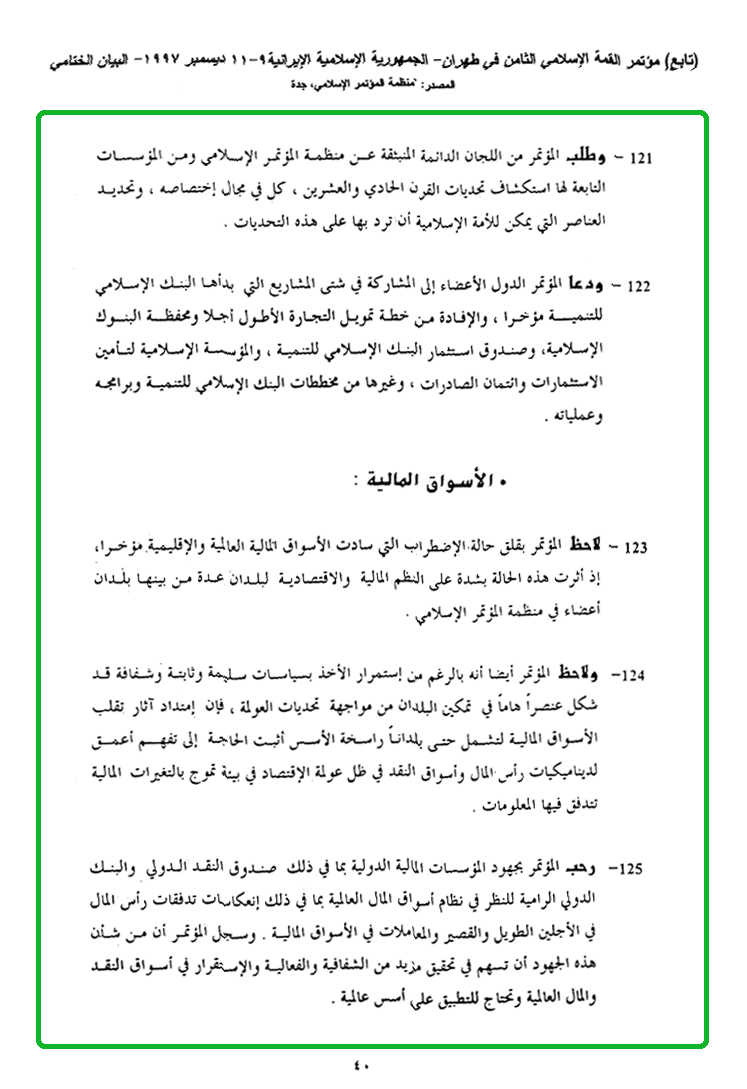 (تابع) مؤتمر القمة الإسلامي الثامن في طهران- الجمهورية الإسلامية الإيرانية ٩-١١ ديسمبر ١٩٩٧- البيان الختامي
المصدر: منظمة المؤتمر الإسلامي، جدة
121 – وطلب المؤتمر من اللجان الدائمة المنبثقة عن منظمة المؤتمر الإسلامي ومن المؤسسات
التابعة لها استكشاف تحديات القرن الحادي والعشرين ، كل في مجال إختصاصه ، وتحديد
العناصر التي يمكن للأمة الإسلامية أن ترد بها على هذه التحديات .
122 – ودعا المؤتمر الدول الأعضاء إلى المشاركة في شتى المشاريع التي بدأها البنك الإسلامي
للتنمية مؤخرا ، والإفادة من خطة تمويل التجارة الأطول أجلا ومحفظة البنوك
الإسلامية، وصندوق استثمار البنك الإسلامي للتنمية ، والمؤسسة الإسلامية لتأمين
الاستثمارات وائتمان الصادرات ، وغيرها من مخططات البنك الإسلامي للتنمية وبرامجه
وعملياته .
• الأسواق المالية :
123 – لاحظ المؤتمر بقلق حالة الإضطراب التي سادت الأسواق المالية العالمية والإقليمية مؤخرا،
إذ أثرت هذه الحالة بشدة على النظم المالية والاقتصادية لبلدان عدة من بينها بلدان
أعضاء في منظمة المؤتمر الإسلامي .
124– ولاحظ المؤتمر أيضا أنه بالرغم من إستمرار الأخذ بسياسات سليمة وثابتة وشفافة قد
شكل عنصراً هاماً في تمكين البلدان من مواجهة تحديات العولمة ، فإن إمتداد آثار تقلب
الأسواق المالية لتشمل حتى بلداناً راسخة الأسس أثبت الحاجة إلى تفهم أعمق
لديناميكيات رأس المال وأسواق النقد في ظل عولمة الإقتصاد في بيئة تموج بالتغيرات المالية
تتدفق فيها المعلومات .
125– رحب المؤتمر بجهود المؤسسات المالية الدولية بما في ذلك صندوق النقد الدولي والبنك
الدولي الرامية للنظر في نظام أسواق المال العالمية بما في ذلك إنعكاسات تدفقات رأس المال
في الأجلين الطويل والقصير والمعاملات في الأسواق المالية . وسجل المؤتمر أن من شأن
هذه الجهود أن تسهم في تحقيق مزيد من الشفافية والفعالية والإستقرار في أسواق النقد
والمال العالمية وتحتاج للتطبيق على أسس عالمية .
٤٠